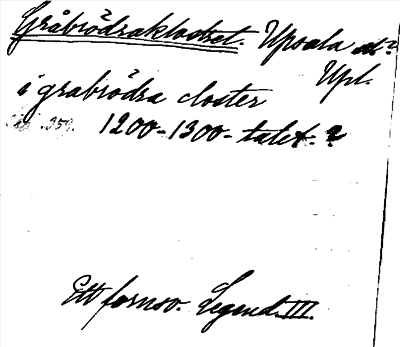 Gråbrödraklostret. Upsala st?
Upl.
i grabrödra closter
359. 1200-1300-talet.?
Ett fornsv. Legend. III.